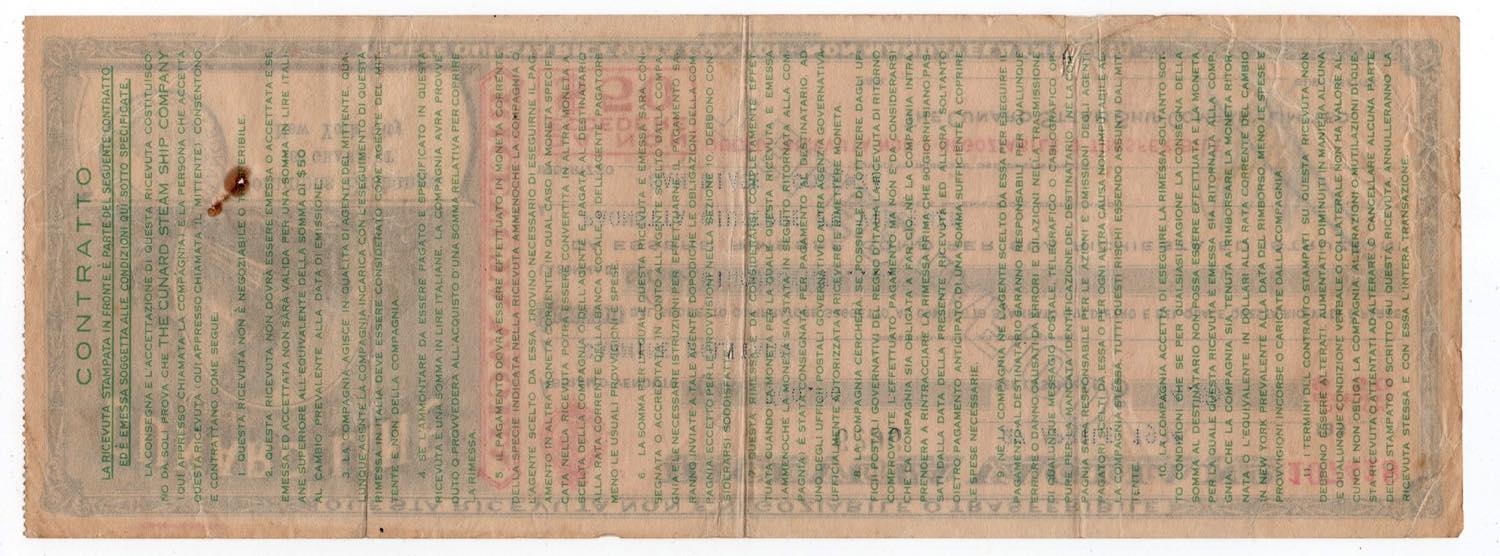 CONTRATTO
LA RICEVUTA STAMPATA IN FRONTE È PARTE DEL SEGUENTE CONTRATTO
ED È EMESSA SOGGETTA ALLE CONDIZIONI QUI SOTTO SPECIFICATE.
LA CONSEGNA E L'ACCETTAZIONE DI QUESTA RICEVUTA COSTITUISCO-
NO DA SOLI PROVA CHE THE CUNARD STEAM SHIP COMPANY
(QUI APPRESSO CHIAMATA LA COMPAGNIA) E LA PERSONA CHE ACCETTA
QUESTA RICEVUTA (QUI APPRESSO CHIAMATA IL MITTENTE) CONSENTONO
E CONTRATTANO COME SEGUE.
1. QUESTA RICEVUTA NON È NEGOZIABILE O TRASFERIBILE.
2. QUESTA RICEVUTA NON DOVRÀ ESSERE EMESSA O ACCETTATA E SE
EMESSA ED ACCETTATA NON SARÀ VALIDA PER UNA SOMMA IN LIRE ITALI-
ANE SUPERIORE ALL'EQUIVALENTE DELLA SOMMA DI $50
AL CAMBIO PREVALENTE ALLA DATA DI EMISSIONE.
3. LA COMPAGNIA AGISCE IN QUALITÀ DI AGENTE DEL MITTENTE. QUA-
LUNQUE AGENTE LA COMPAGNIA INCARICA CON L'ESEGUIMENTO DI QUESTA
RIMESSA IN ITALIA DEVE ESSERE CONSIDERATO COME AGENTE DEL MIT-
TENTE E NON DELLA COMPAGNIA.
4. SE L'AMMONTARE DA ESSERE PAGATO E SPECIFICATO IN QUESTA
RICEVUTA È UNA SOMMA IN LIRE ITALIANE, LA COMPAGNIA AVRÀ PROVVE-
DUTO O PROVVEDERÀ ALL'ACQUISTO D'UNA SOMMA RELATIVA PER COPRIRE
LA RIMESSA.
5. IL PAGAMENTO DOVRÀ ESSERE EFFETTUATO IN MONETA CORRENTE
DELLA SPECIE INDICATA NELLA RICEVUTA AMMENOCHE LA COMPAGNIA O
L'AGENTE SCELTO DA ESSA TROVINO NECESSARIO DI ESEGUIRNE IL PAG-
AMENTO IN ALTRA MONETA CORRENTE, IN QUAL CASO LA MONETA SPECIFI-
CATA NELLA RICEVUTA POTRÀ ESSERE CONVERTITA IN ALTRA MONETA A
SCELTA DELLA COMPAGNIA O DELL'AGENTE E PAGATA AL DESTINATARIO
ALLA RATA CORRENTE DELLA BANCA LOCALE O DELL'AGENTE PAGATORE
MENO LE USUALI PROVVIGIONI.
6. LA SOMMA PER LA QUALE QUESTA RICEVUTA È EMESSA SARÀ CON-
SEGNATA O ACCREDITATA IN CONTO ALL'AGENTE SCELTO DALLA COMPA-
GNIA E LE NECESSARIE ISTRUZIONI PER EFFETTUARNE IL PAGAMENTO SA-
RANNO INVIATE A TALE AGENTE, DOPODICHE LE OBLIGAZIONI DELLA COM-
PAGNIA ECCETTO PER LE PROVVISIONI NELLA SEZIONE 10 DEBBONO CON-
SIDERARSI SODDISFATTE.
7. QUESTA RIMESSA È DA CONSIDERARSI COMPLETAMENTE EFFET-
TUATA QUANDO LA MONETA PER LA QUALE QUESTA RICEVUTA È EMESSA
(AMMENOCHE LA MONETA SIA STATA IN SEGUITO RITORNATA ALLA COM-
PAGNIA) È STATA CONSEGNATA, PER PAGAMENTO AL DESTINATARIO, AD
UNO DEGLI UFFICI POSTALI GOVERNATIVI O ALTRA AGENZIA GOVERNATIVA
UFFICIALMENTE AUTORIZZATA A RICEVERE E TRASMETTERE MONETA
8. LA COMPAGNIA CERCHERÀ, SE POSSIBILE, DI OTTENERE DAGLI UF-
FICI POSTALI GOVERNATIVI DEL REGNO D'ITALIA LA RICEVUTA DI RITORNO
COMPROVANTE L'EFFETTUATO PAGAMENTO MA NON È DA CONSIDERARSI
CHE DA COMPAGNIA SIA OBLIGATA A FARCIÒ. NE LA COMPAGNIA INTRA-
PRENDERÀ A RINTRACCIARE LA RIMESSA PRIMA CHE 60 GIORNI SIANO PAS-
SATI DALLA DATA DELLA PRESENTE RICEVUTA ED ALLORA SOLTANTO
DIETRO PAGAMENTO ANTICIPATO, DI UNA SOMMA SUFFICIENTE A COPRIRE
LE SPESE NECESSARIE.
9. NE LA COMPAGNIA NE L'AGENTE SCELTO DA ESSA PER ESEGUIRE IL
PAGAMENTO AL DESTINATARIO SARANNO RESPONSABILI PER QUALUNQUE
ERRORE O DANNO CAUSATI DA ERRORI E DILAZIONI NELLA TRASMISSIONE
DI QUALUNQUE MESSAGGIO POSTALE, TELEGRAFICO O CABLOGRAFICO OP-
PURE PER LA MANCATA IDENTIFICAZIONE DEL DESTINATARIO NE LA COM-
PAGNIA SARÀ RESPONSABILE PER LE AZIONI E OMISSIONI DEGLI AGENTI
PAGATORI SCELTI DA ESSA O PER OGNI ALTRA CAUSA NON IMPUTABILE AL-
LA COMPAGNIA STESSA, TUTTI QUESTI RISCHI ESSENDO ASSUNTI DAL MIT-
TENTE.
10. LA COMPAGNIA ACCETTA DI ESEGUIRE LA RIMESSA SOLTANTO SOT-
TO CONDIZIONI CHE SE PER QUALSIASI RAGIONE LA CONSEGNA DELLA
SOMMA AL DESTINATARIO NON POSSA ESSERE EFFETTUATA E LA MONETA
PER LA QUALE QUESTA RICEVUTA È EMESSA SIA RITORNATA ALLA COMPA-
GNIA, CHE LA COMPAGNIA SIA TENUTA A RIMBORSARE LA MONETA RITOR-
NATA O L'EQUIVALENTE IN DOLLARI ALLA RATA CORRENTE DEL CAMBIO
IN NEW YORK PREVALENTE ALLA DATA DEL RIMBORSO MENO LE SPESE E
PROVVIGIONI INCORSE O CARICATE DALLA COMPAGNIA.
11. I TERMINI DEL CONTRATTO STAMPATI SU QUESTA RICEVUTA NON
DEBBONO ESSERE ALTERATI, AUMENTATI O DIMINUITI IN MANIERA ALCUNA
E QUALUNQUE CONDIZIONE VERBALE O COLLATERALE NON HA VALORE AL-
CUNO E NON OBLIGA LA COMPAGNIA. ALTERAZIONI O MUTILAZIONI DI QUE-
STA RICEVUTA O ATTENTATI AD ALTERARE O CANCELLARE ALCUNA PARTE
DELLO STAMPATO O SCRITTO SU QUESTA RICEVUTA, ANNULLERANNO LA
RICEVUTA STESSA E CON ESSA L'INTERA TRANSAZIONE.